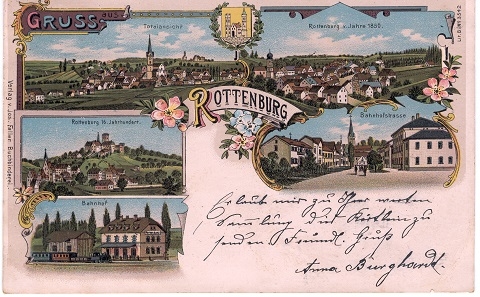 GRUSS aus
Totalansicht
Rottenburg i. Jahre 1850.
ROTTENBURG
Rottenburg 16. Jahrhundert.
Bahnhofstrasse.
Bahnhof
Verlag v. Jos. Faller Buchbinderei.
Erlaubt mir zu Ihrer werten
Sammlung dies Kärtlein zu
senden Freundl. Gruß
Anna Burghardt.